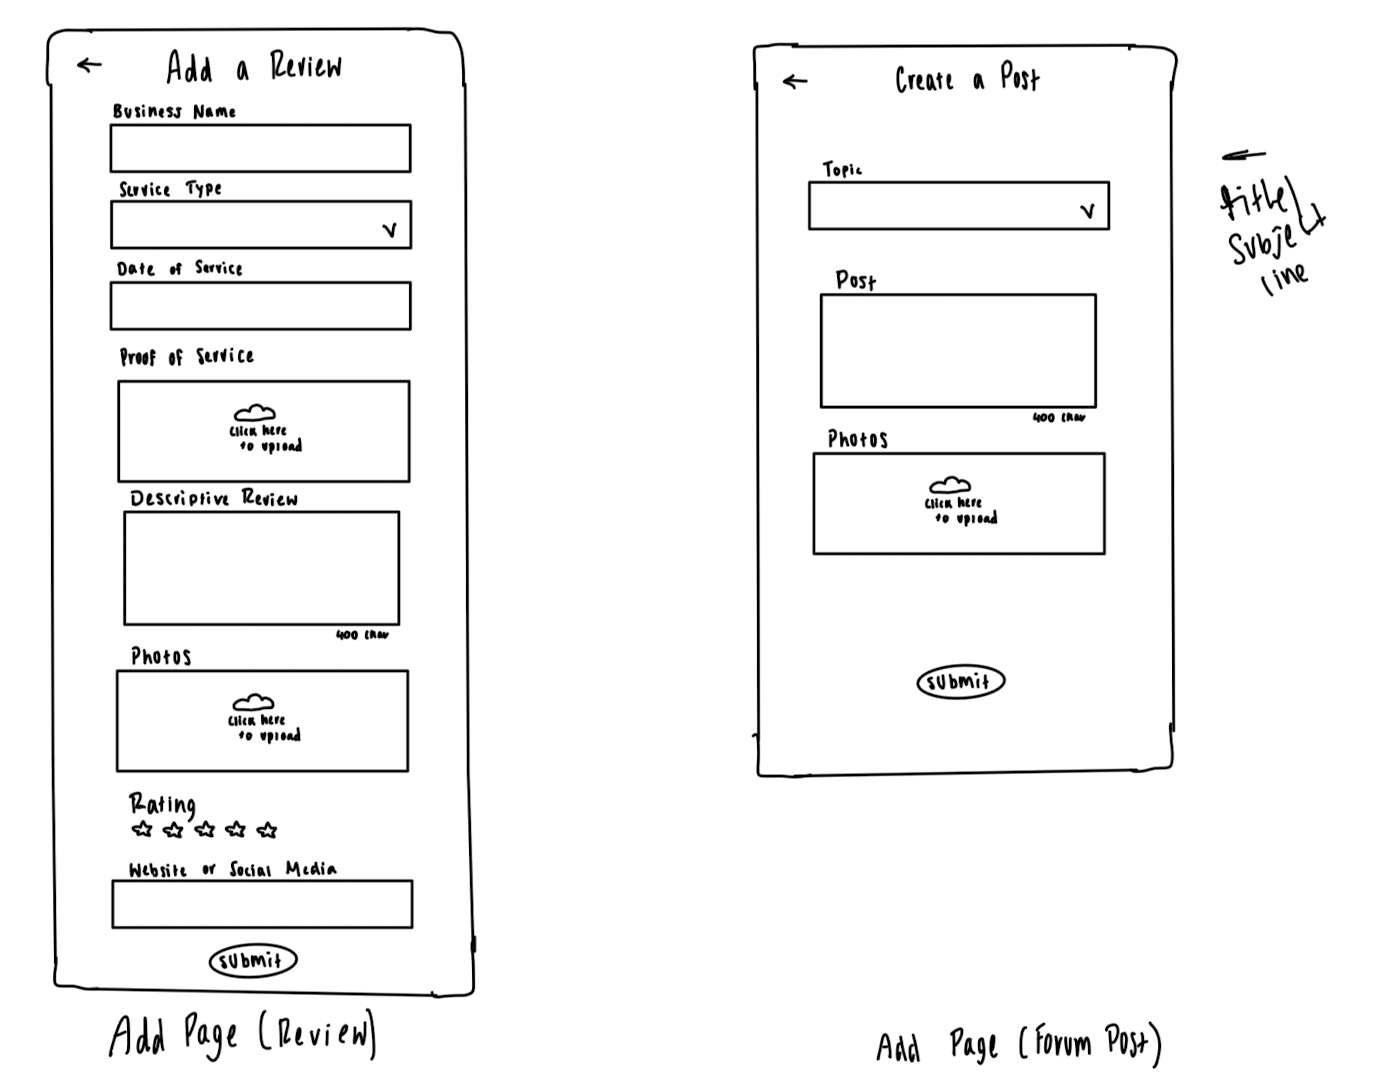 ← Add a Review
Business Name
Service Type
Date of Service
Proof of Service
Click here
to upload
Descriptive Review
400 char
Photos
Click here
to upload
Rating
Website or Social Media
submit
Add Page (Review)
← Create a Post
Topic
Post
400 char
Photos
Click here
to upload
submit
←
title/
subject
line
Add Page (Forum Post)